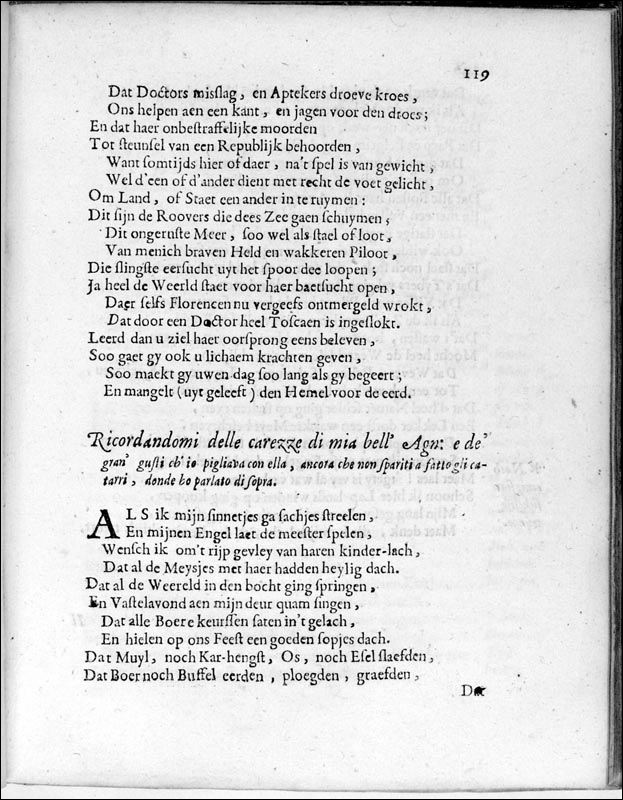 119
Dat Doctors misslag, en Aptekers droeve kroes,
Ons helpen aen een kant, en jagen voor den droes;
En dat haer onbestraffelijke moorden
Tot steunsel van een Republijk behoorden,
Want somtijds hier of daer, na't spel is van gewicht,
Wel d'een of d'ander dient met recht de voet gelicht,
Om Land, of Staet een ander in te ruymen:
Dit sijn de Roovers die dees Zee gaen schuymen,
Dit ongeruste Meer, soo wel als stael of loot,
Van menich braven Held en wakkeren Piloot,
Die slingste eersucht uyt het spoor dee loopen;
Ja heel de Weerld staet voor haer baetsucht open,
Daer selfs Florencen nu vergeefs ontmergeld wrokt,
Dat door een Doctor heel Toscaen is ingeslokt.
Leerd dan u ziel haer oorsprong eens beleven,
Soo gaet gy ook u lichaem krachten geven,
Soo maekt gy uwen dag soo lang als gy begeert;
En mangelt (uyt geleeft) den Hemel voor de eerd.
Ricordandomi delle carezze di mia bell' Agn: e de'
gran' gusti ch' io pigliava con ella, ancora che non spariti a fatto gli ca-
tarri, donde ho parlato di sopia.
ALS ik mijn sinnetjes ga sachjes streelen,
En mijnen Engel laet de meester spelen,
Wensch ik om't rijp gevley van haren kinder-lach,
Dat al de Meysjes met haer hadden heylig dach.
Dat al de Weereld in den bocht ging springen,
En Vastelavond aen mijn deur quam singen,
Dat alle Boere keurssen saten in't gelach,
En hielen op ons Feest een goeden sopjes dach.
Dat Muyl, noch Kar-hengst, Os, noch Esel slaefden,
Dat Boer noch Buffel eerden, ploegden, graefden,
Dat